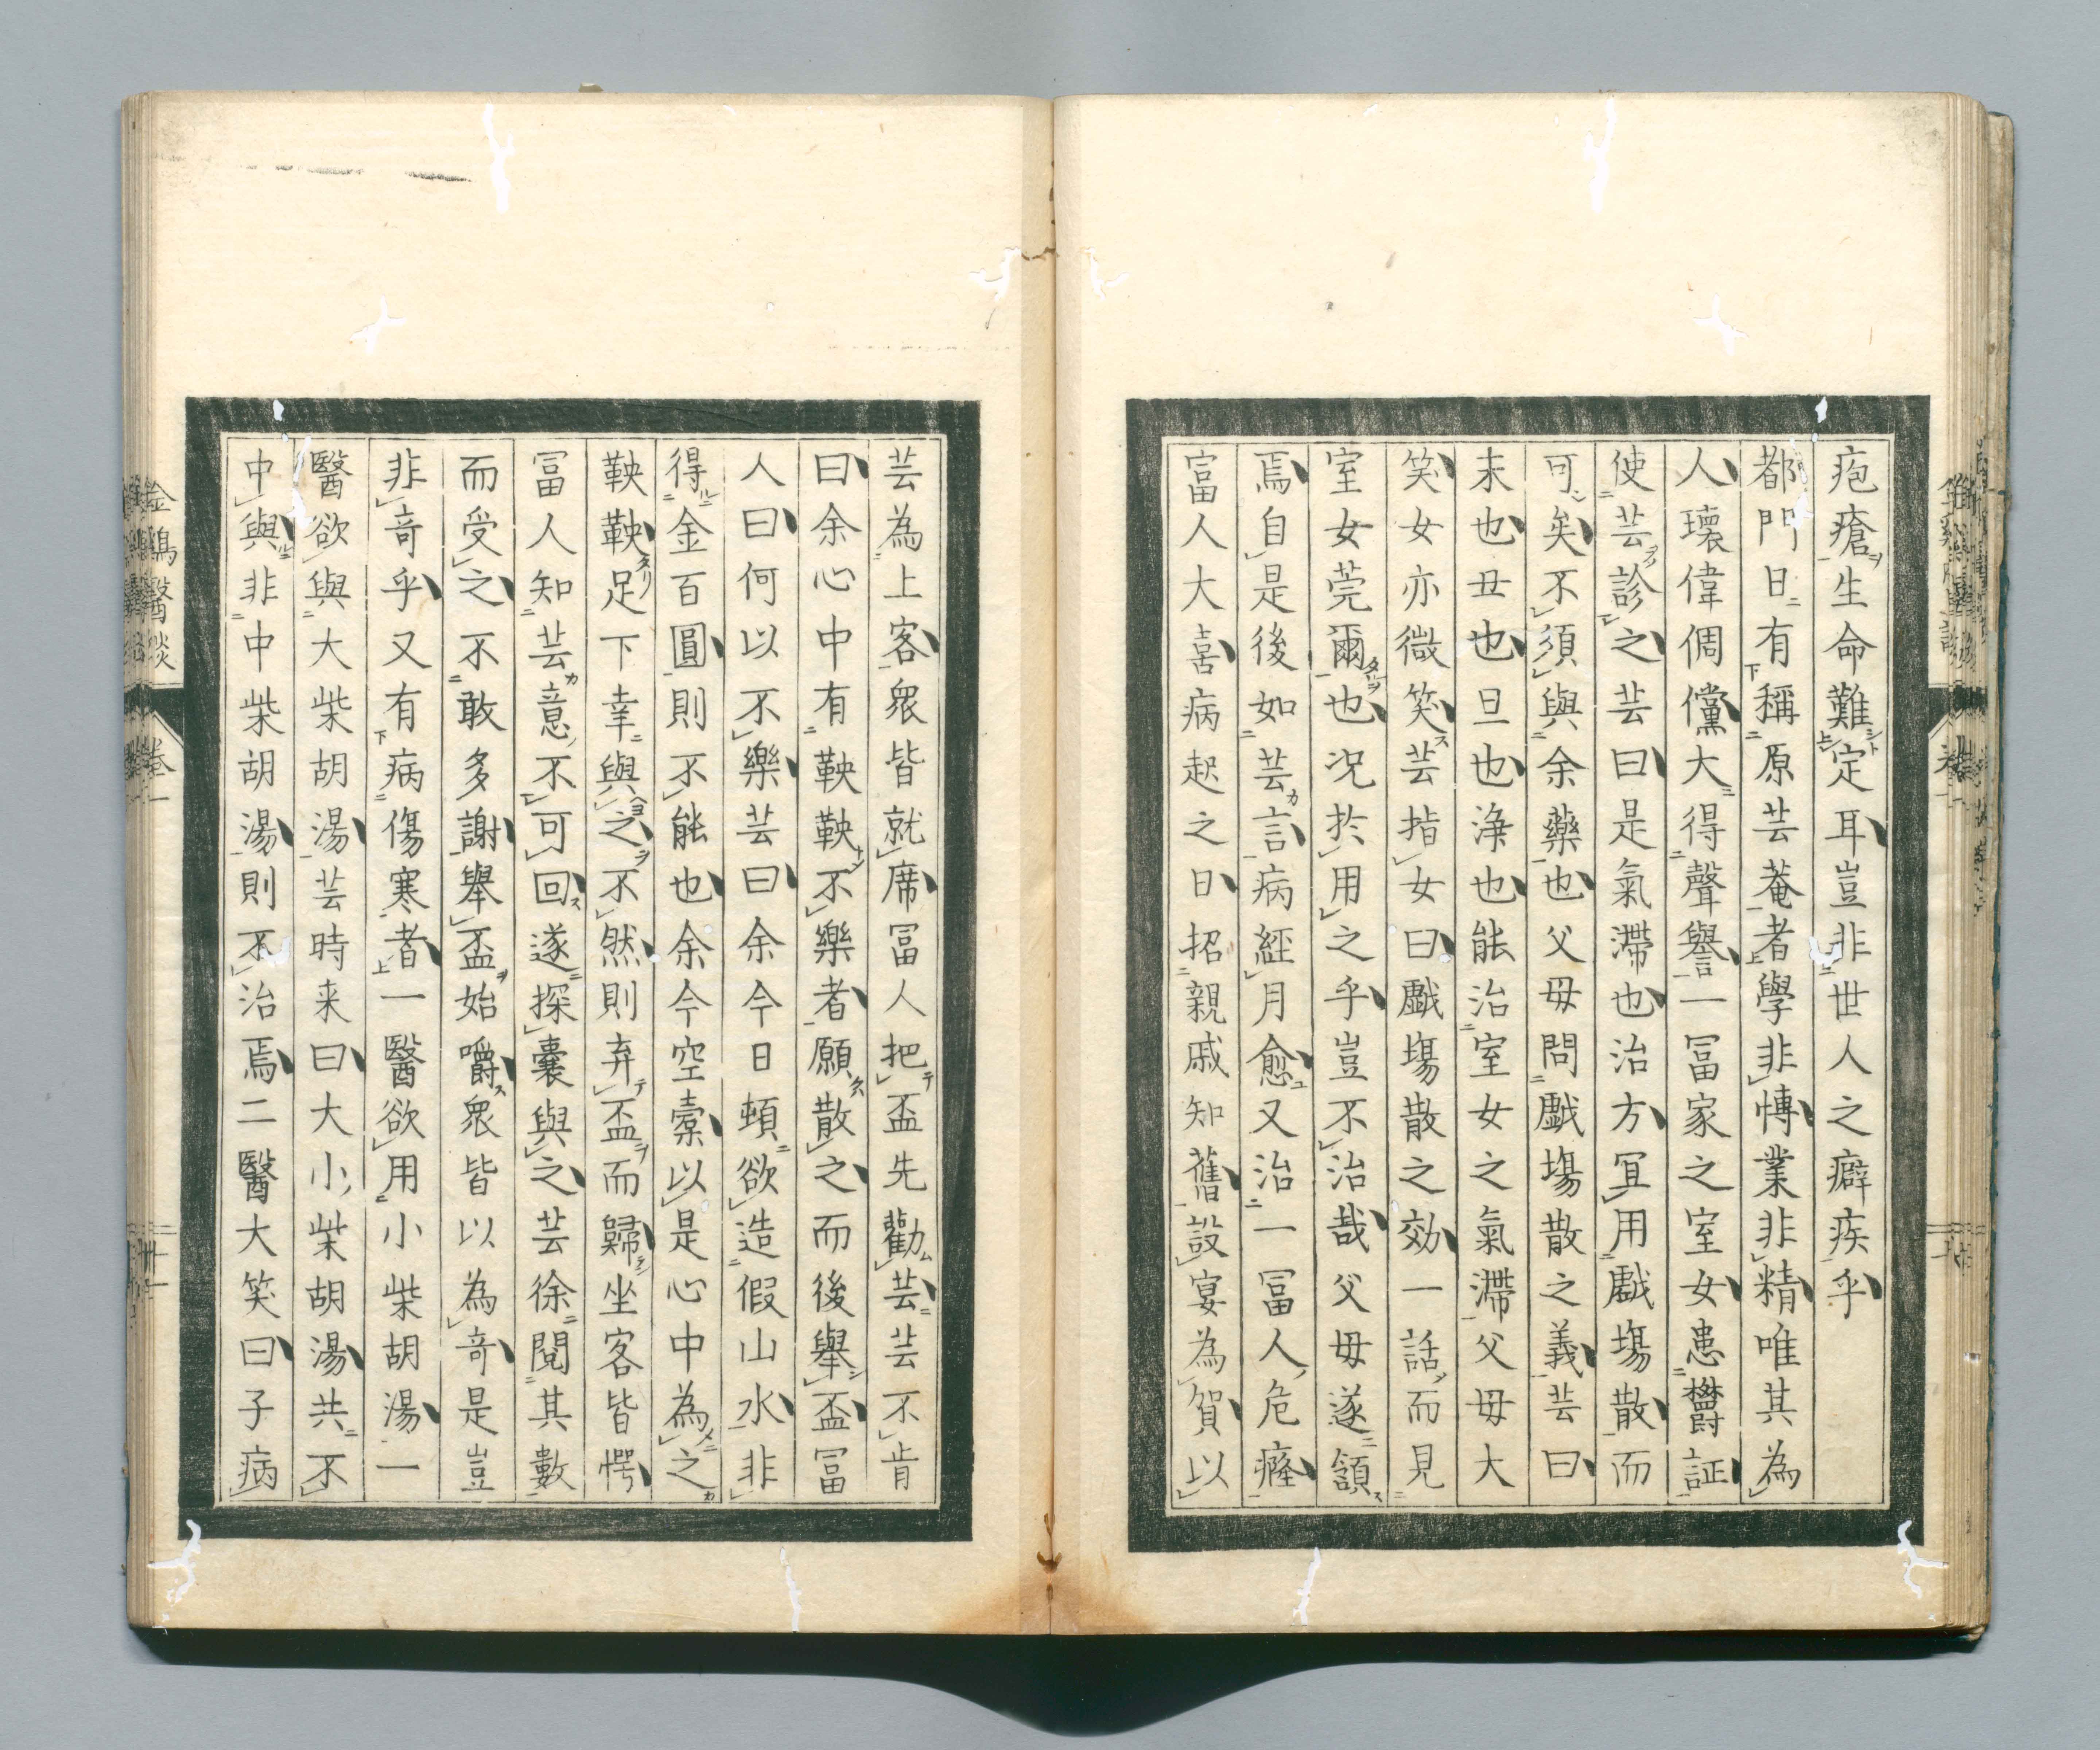 疱瘡生命難定耳豈非世人之癖疾乎
都門日有稱原芸菴者學非慱業非精唯其為
人壞偉倜儻大得聲譽一冨家之室女患欝証
使芸診之芸曰是氣滯也治方冝用戱塲散而
可矣不須與余藥也父毋問戱塲散之義芸曰
末也丑也旦也淨也能治室女之氣滯父毋大
笑女亦微笑芸指女曰戱塲散之効一話而見
室女莞爾也况扵用之乎豈不治哉父毋遂頷
焉自是後如芸言病經月愈又治一冨人危癃
富人大喜病起之日招親戚知舊設宴為賀以
芸為上客衆皆就席冨人把盃先勸芸芸不肯
曰余心中有鞅鞅不樂者願散之而後舉盃冨
人曰何以不樂芸曰余今日頓欲造假山水非
得金百圓則不能也余今空橐以是心中為之
鞅鞅足下幸與之不然則弃盃而歸坐客皆愕
冨人知芸意不可回遂探囊與之芸徐閱其數
而受之不敢多謝舉盃始嚼衆皆以為竒是豈
非竒乎又有病傷寒者一醫欲用小柴胡湯一
醫欲與大柴胡湯芸時来曰大小柴胡湯共不
中與非中柴胡湯則不治焉二醫大笑曰子病
金鷄醫談
卷一